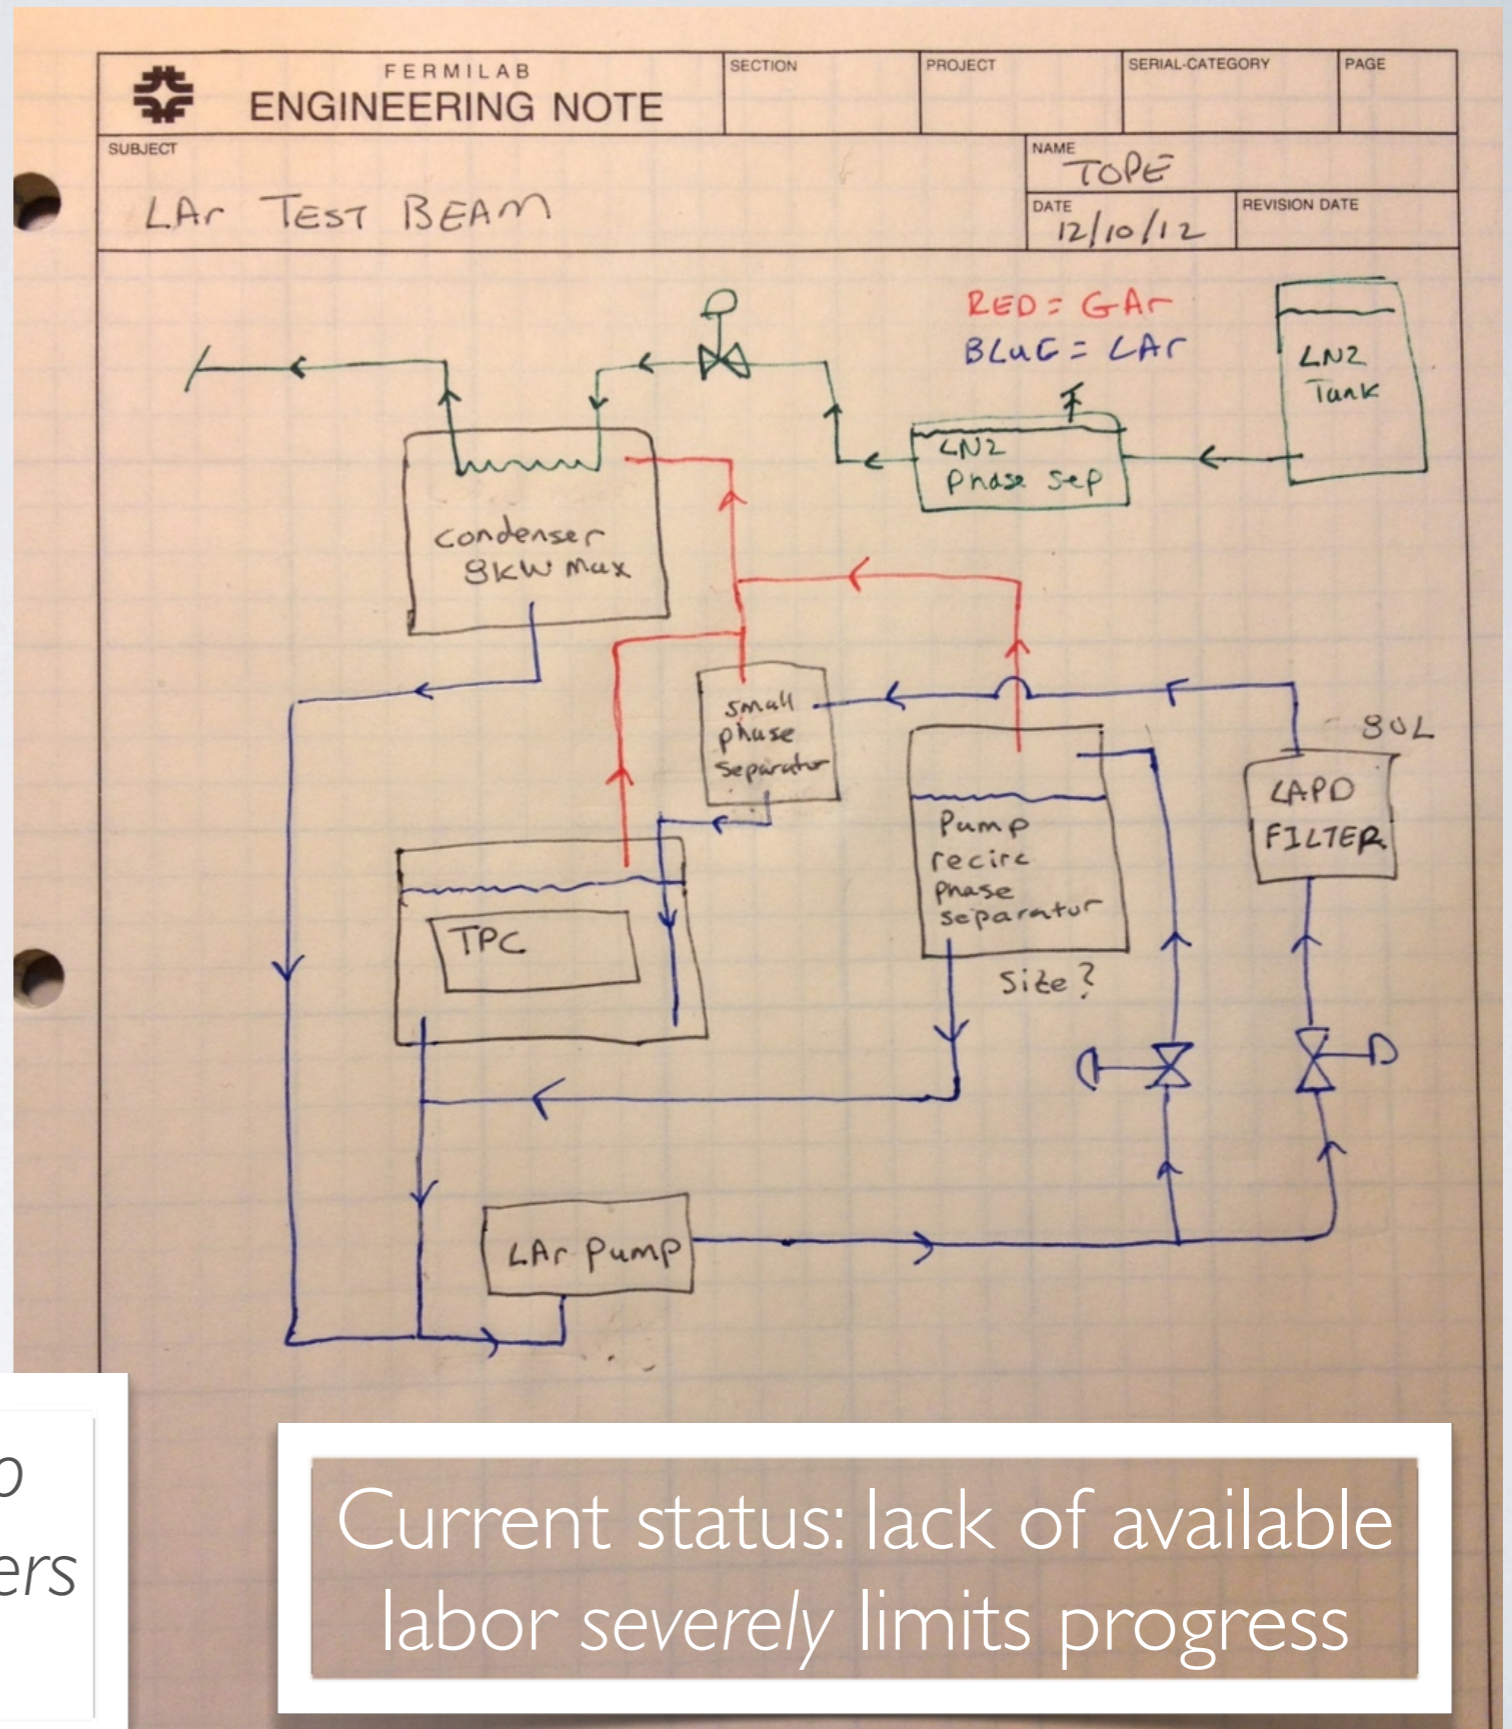 FERMILAB
ENGINEERING NOTE
SECTION
PROJECT
SERIAL-CATEGORY
PAGE
SUBJECT
LAr TEST BEAM
NAME
TOPE
DATE
12/10/12
REVISION DATE
RED = GAr
BLUE = LAr
LN2
Tank
LN2
Phase Sep
Condenser
8kW Max
small
phase
separator
80L
LAPD
FILTER
Pump
recirc
phase
separator
Size?
TPC
LAr Pump
ers
Current status: lack of available
labor severely limits progress